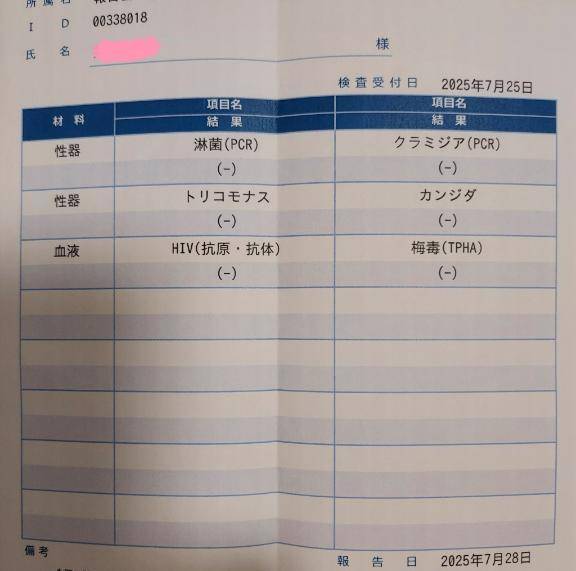 所属名
ID 00338018
氏名 様
検査受付日 2025年7月25日
材料 項目名 項目名
結果 結果
性器 淋菌(PCR) クラミジア(PCR)
(-) (-)
性器 トリコモナス カンジダ
(-) (-)
血液 HIV(抗原・抗体) 梅毒(TPHA)
(-) (-)
備考
報告日 2025年7月28日